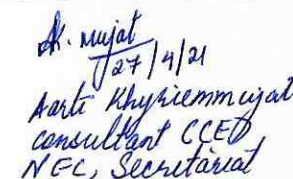 A. Mujat
27/4/21
Aarti Khyriemmujat
consultant CCED
NEC, Secretariat